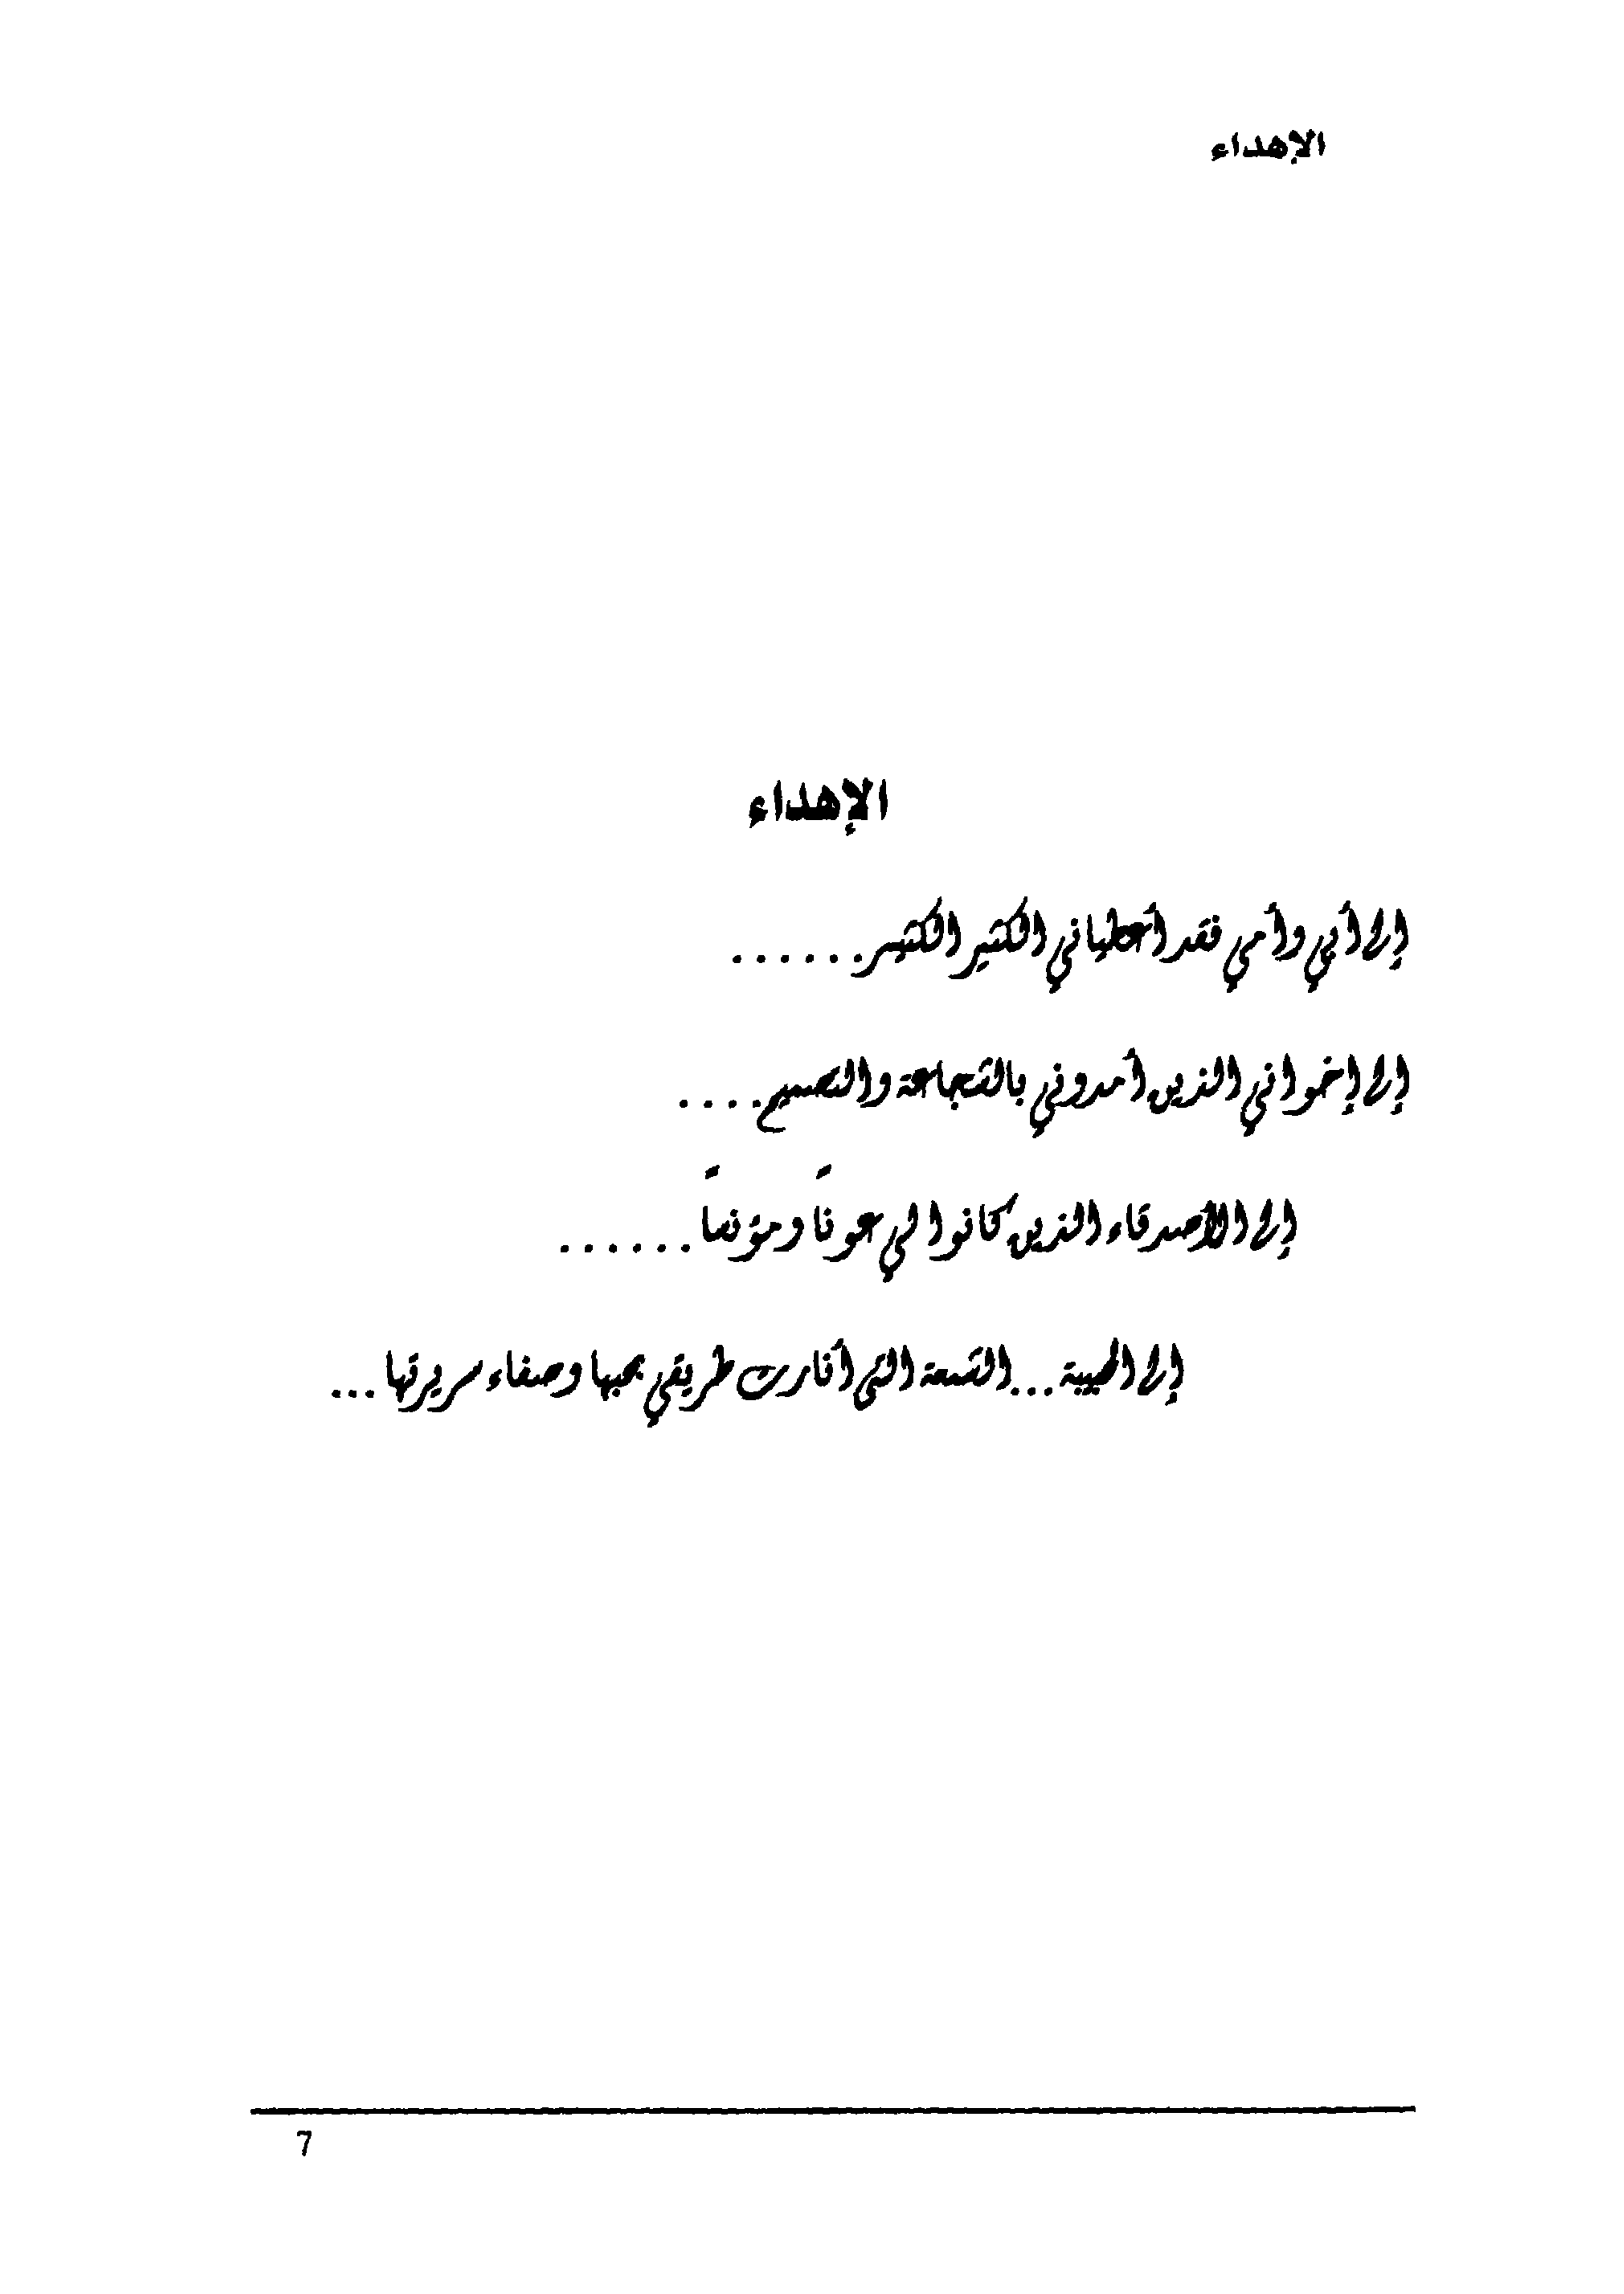 الإهداء
الإهداء
إلى أبي وأمي فقد أعطياني الكثير الكثير......
إلى إخواني الذين أمدوني بالشجاعة والتصميم....
إلى الأصدقاء الذين كانوا لي عوناً ومؤنساً......
إلى الحبيبة...الشمعة التي أنارت طريقي بحبها وصفاء سريرتها...
7